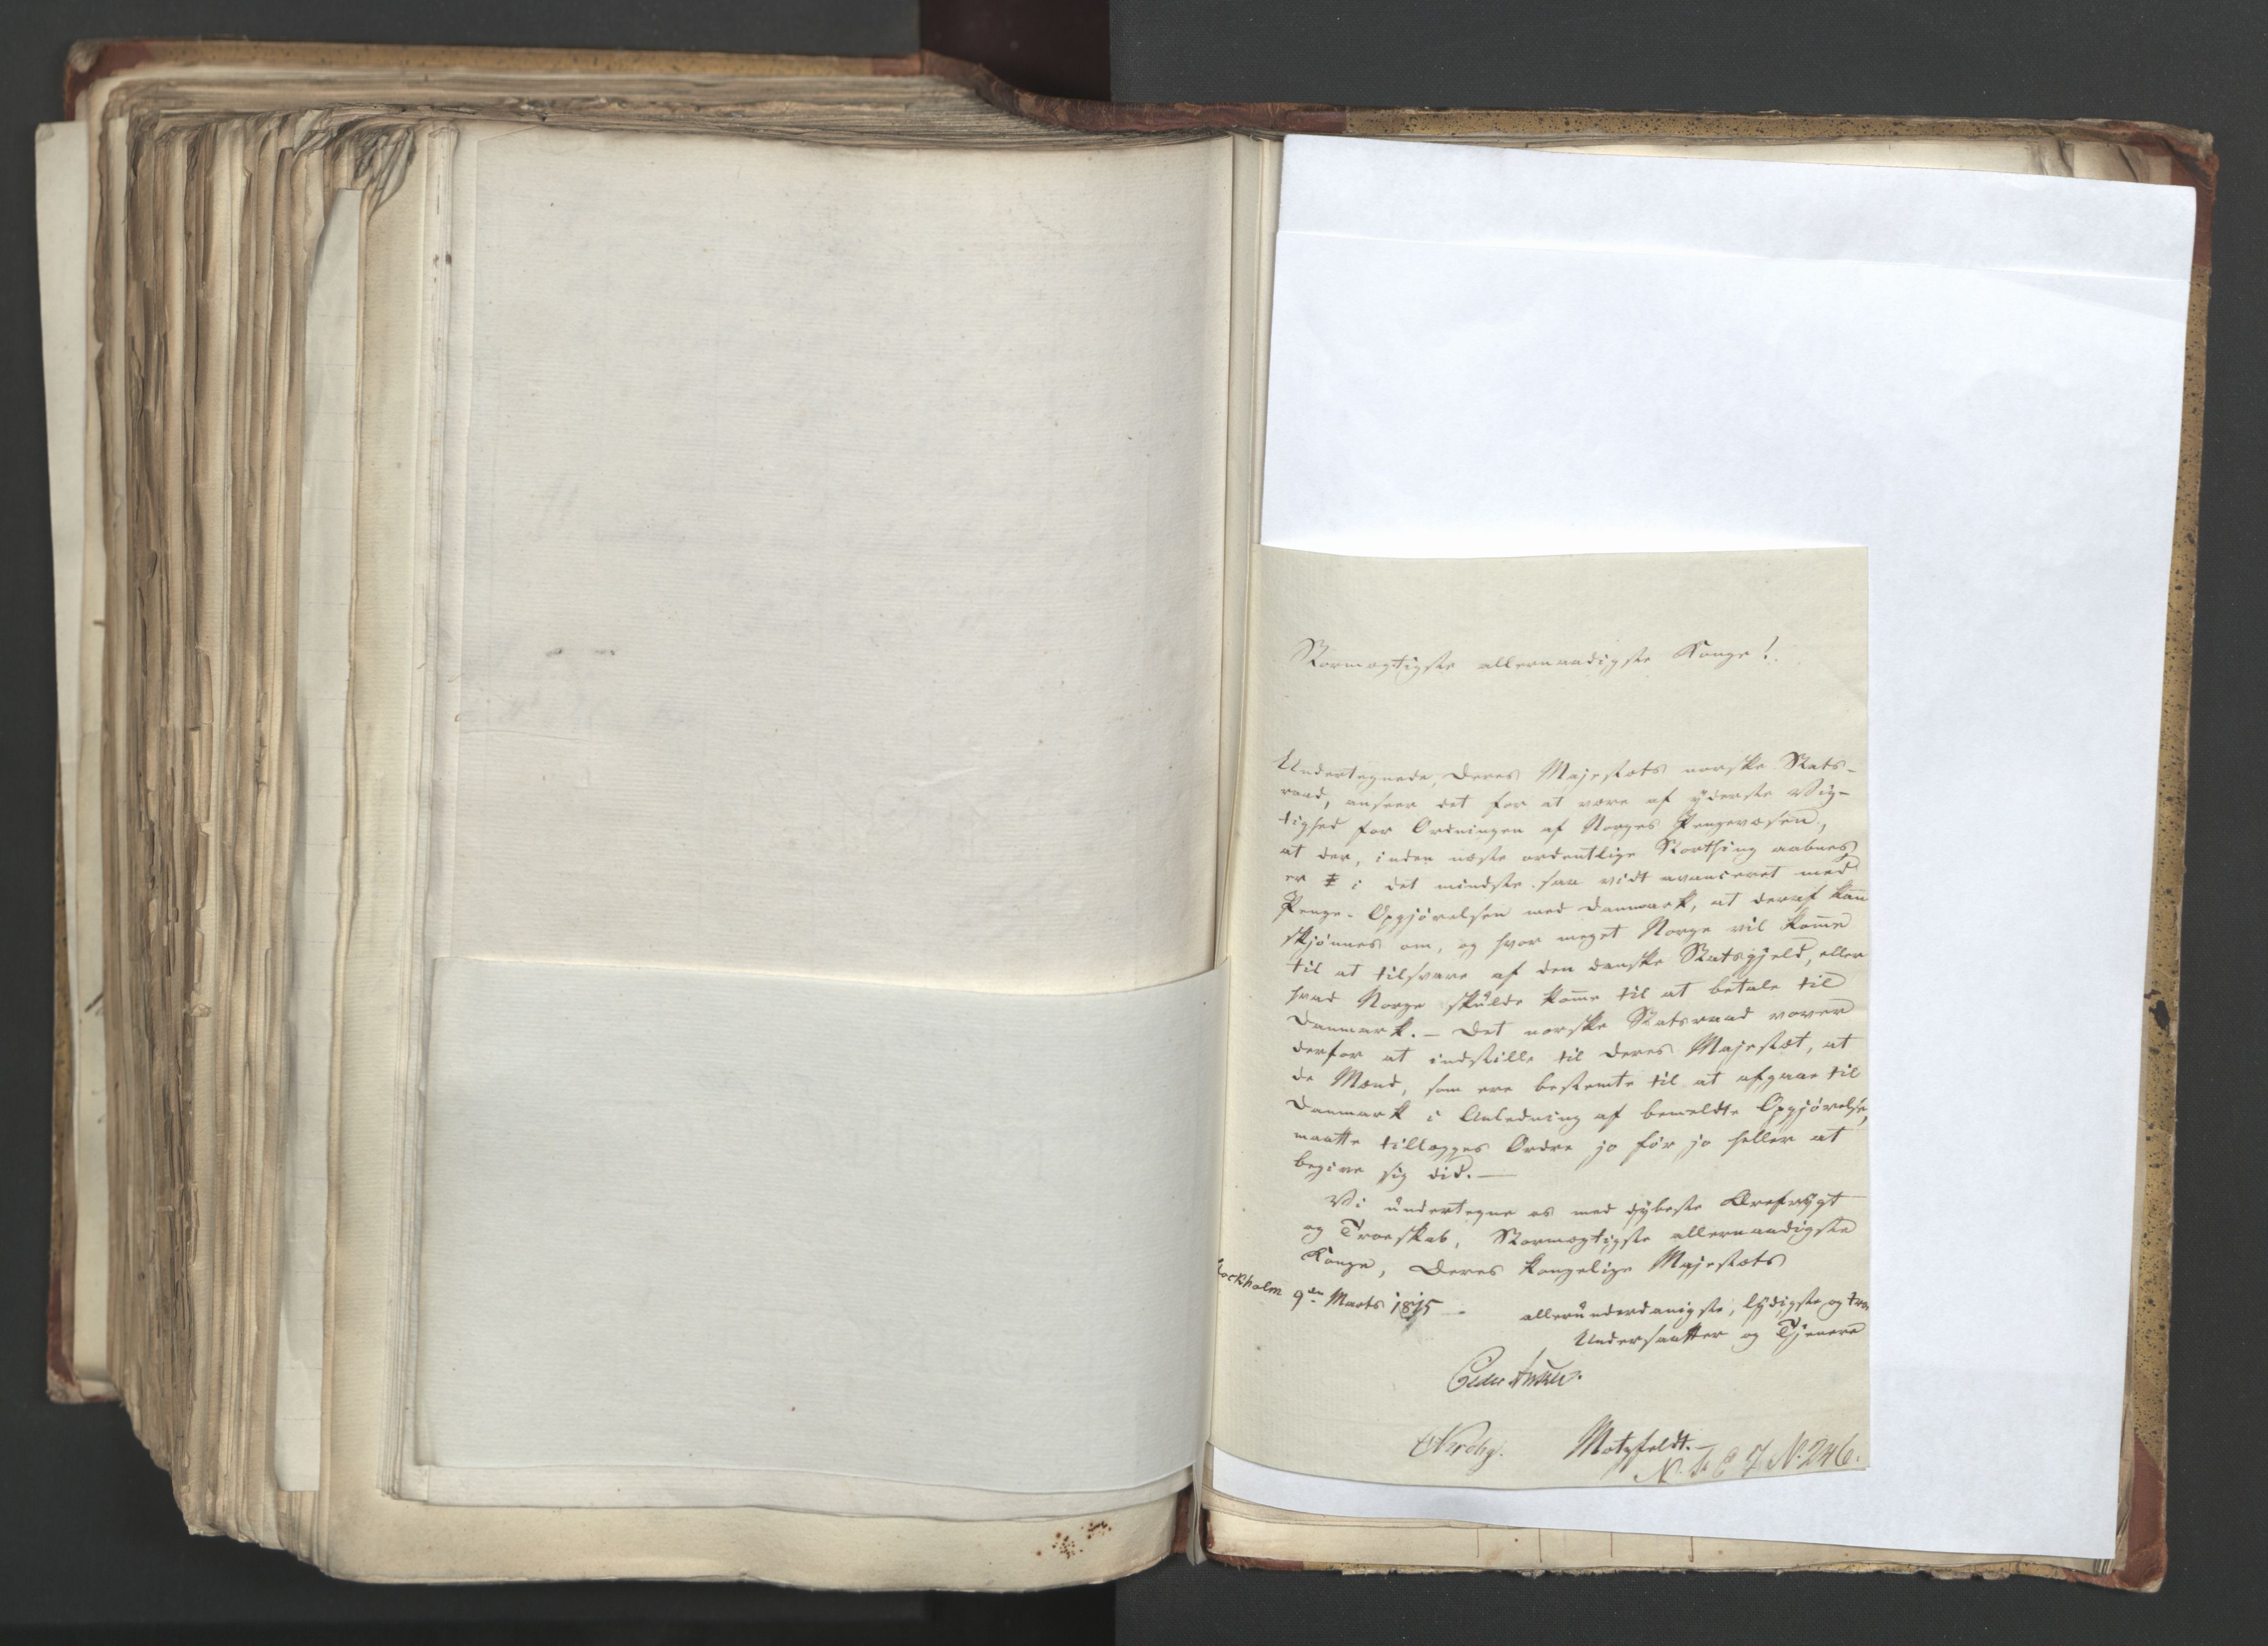 Stormægtigste allernaadigste Konge!
Undertegnede, Deres Majestæts norske Stats-
raad, anseer det for at være af yderste Vig-
tighed for Ordningen af Norges Pengevæsen,
at der, inden næste ordentlige Storthing aabnes
er i det mindste saa vidt avanceret med
Penge-Opgjörelsen med Danmark, at deraf kan̄
skjönnes om, og hvor meget Norge vil kom̄e
til at tilsvare af den danske Statsgjeld, eller
hvad Norge skulde kom̄e til at betale til
Danmark. – Det norske Statsraad vover
derfor at indstille til Deres Majestæt, at
de Mænd, som ere bestemte til at afgaae til
Danmark i Anledning af bemeldte Opgjörelse,
maatte tillægges Ordre jo för jo heller at
begive sig did. —
Vi undertegne os med dybeste Ærefrygt
og Troeskab, Stormægtigste allernaadigste
Konge, Deres kongelige Majestæts
Stockholm 9de Marts 1815 — allerunderdanigste, lydigste og troe
Undersaatter og Tjenere
Peder Anker.
Motzfeldt. –
N. 246.